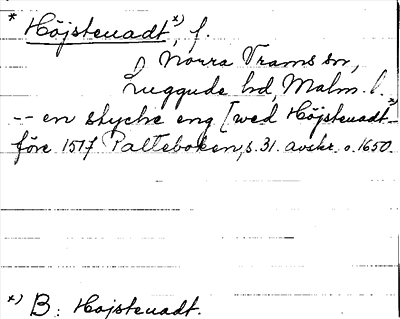 * Höjstenadt*), f.
i Norra Vrams sn,
Luggude hd, Malm. l.
-- en stycke eng [wed Höjstenadt*)-
före 1517 Palteboken, s. 31. avskr. o. 1650.
*) B: Hojstenadt.